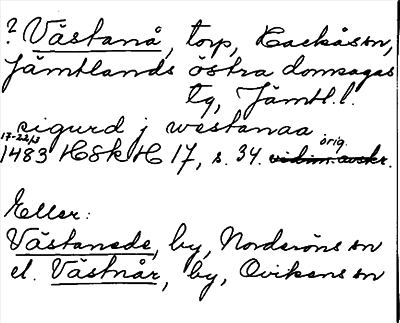 ? Västanå, torp, Hackåsn sn,
Jämtlands östra domsagas
tg, Jämtl. l.
sigurd j westanaa
17-22/3 orig.
1483 HSkH 17, s. 34. vidim. avskr.
Eller:
Västanede, by, Norderöns sn
el. Västnår, by, Ovikens sn